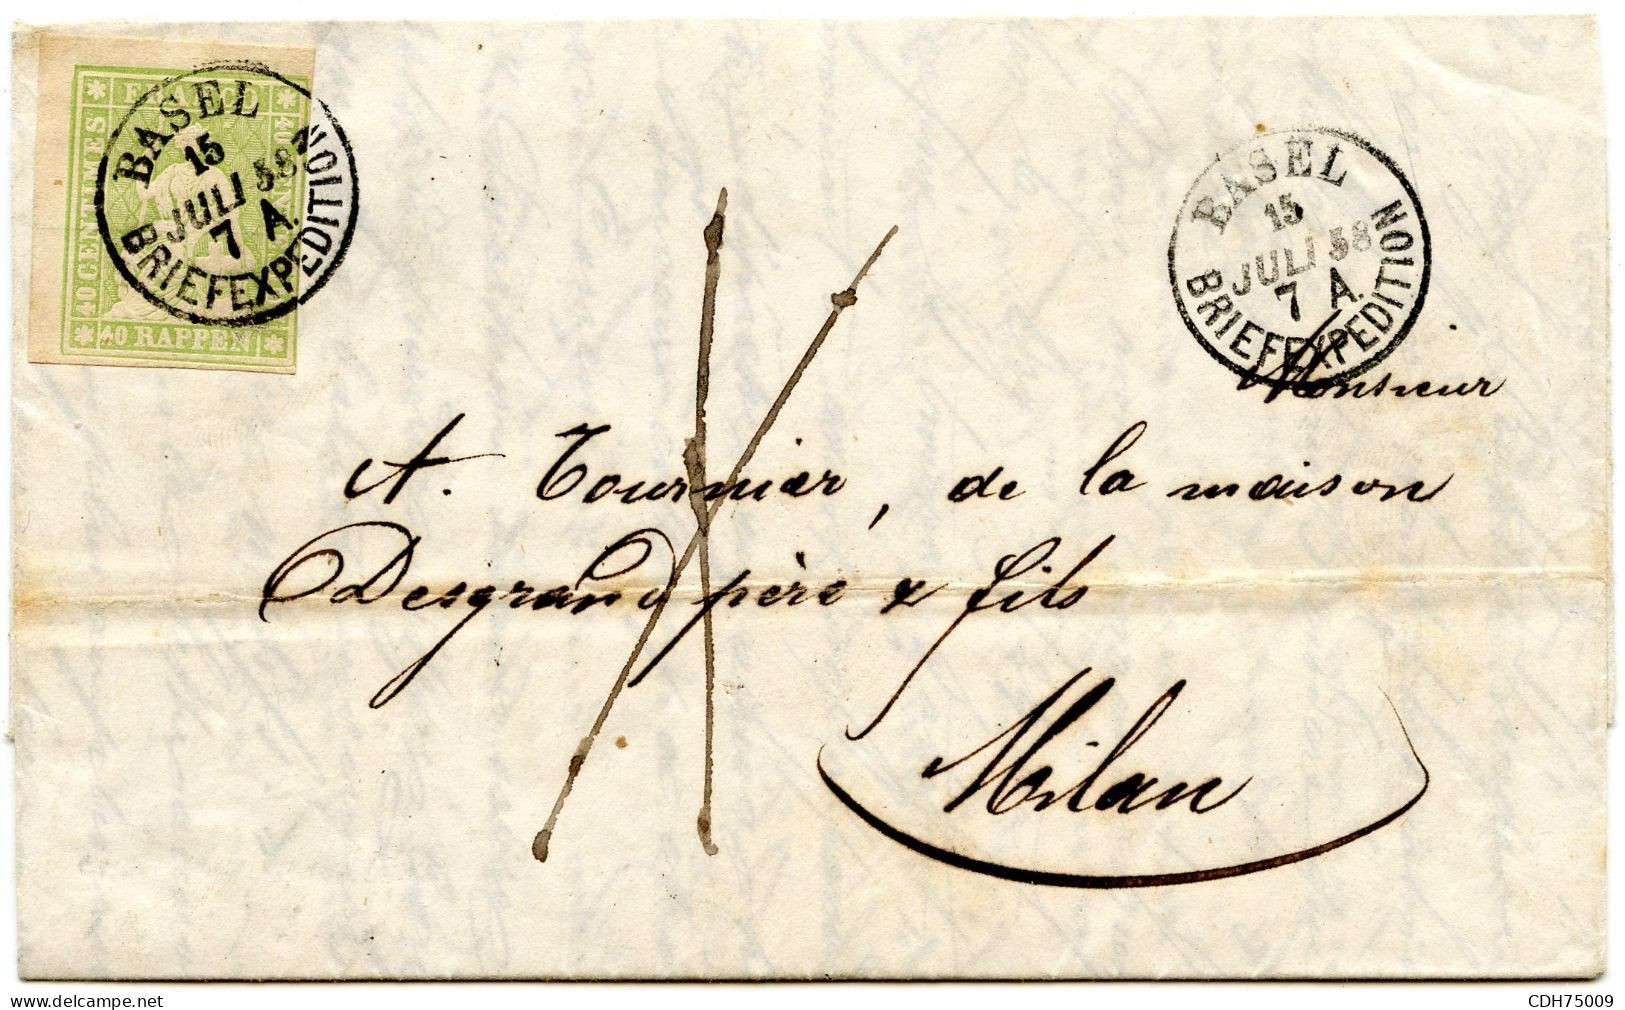 FRANCO
40 CENTIMES
40 RAPPEN
BASEL
15
JULI 58
7 A.
BRIEFEXPEDITION
BASEL
15
JULI 58
7 A.
BRIEFEXPEDITION
Monsieur
A. Tournier, de la maison
Desgrand père & fils
Milan
www.delcampe.net
CDH75009